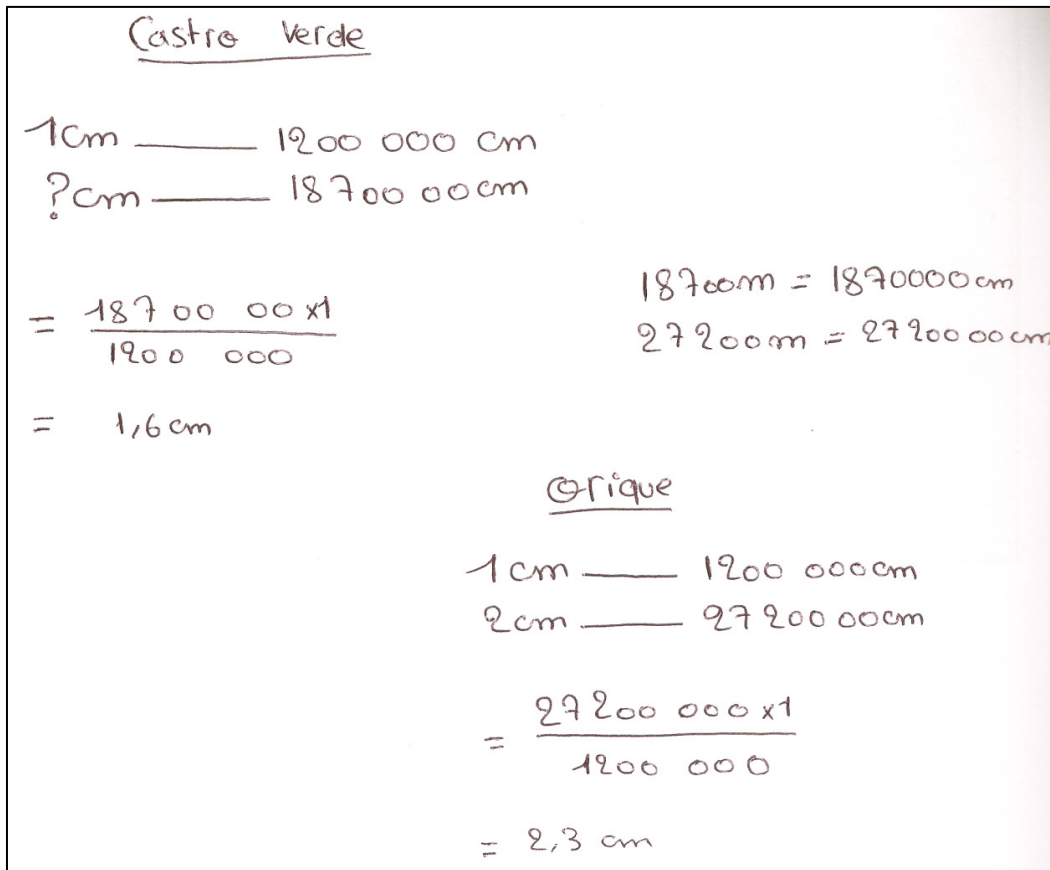 Castro Verde
1cm —— 1200 000 cm
?cm —— 18700 00cm
= 18700 00 x1
1200 000
= 1,6 cm
18700m = 1870000cm
27200m = 2720000cm
Orique
1cm —— 1200 000cm
2cm —— 27200 00cm
= 27200 000 x1
1200 000
= 2,3 cm